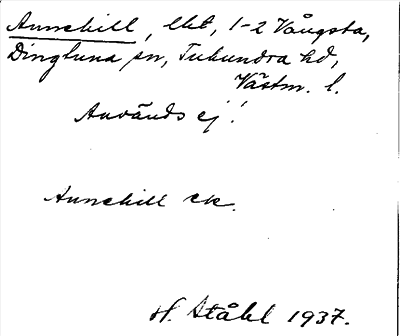 Annehill, lht, 1-2 Vångsta,
Dingtuna sn, Tuhundra hd,
Västm. l.
Används ej!
Annehill ek.
H. Ståhl 1937.